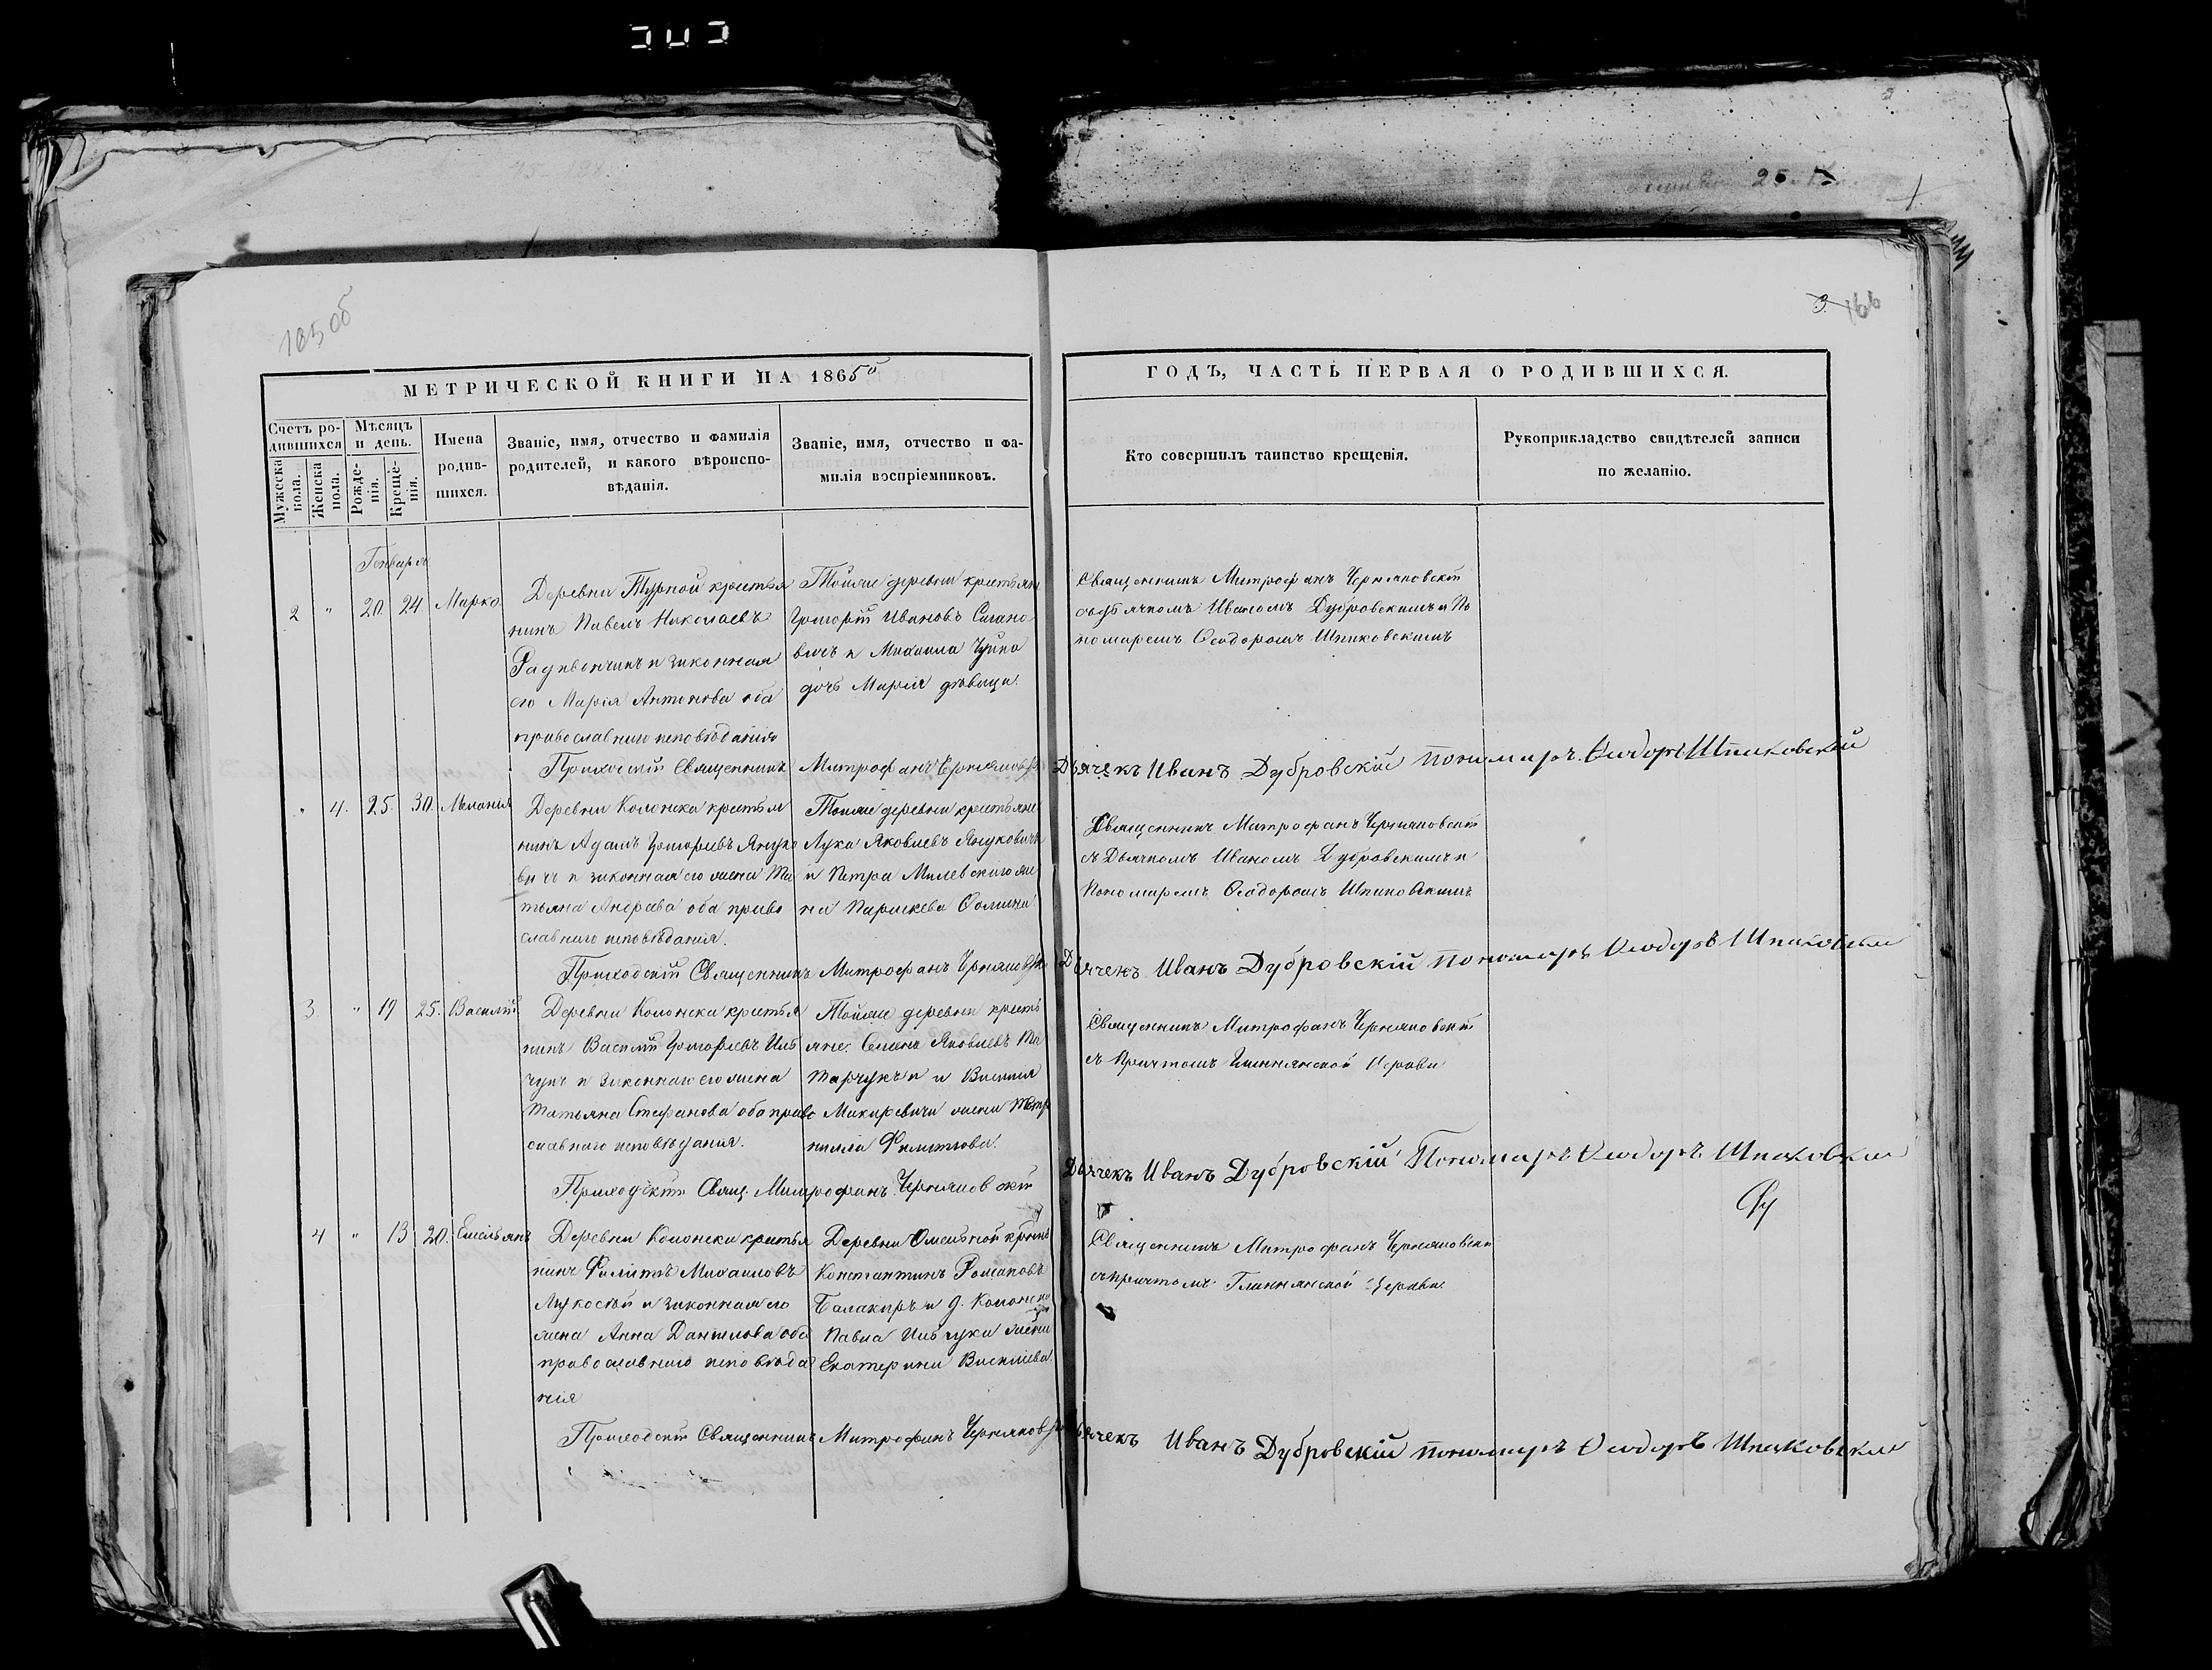 165 об
3. 166
МЕТРИЧЕСКОЙ КНИГИ НА 1865й
ГОДЪ, ЧАСТЬ ПЕРВАЯ О РОДИВШИХСЯ.
Счетъ родившихся
Мужеска пола.
Женска пола.
Мѣсяцъ и день.
Рожденія.
Крещенія.
Имена родившихся.
Званіе, имя, отчество и фамилія
родителей, и какого вѣроисповѣданія.
Званіе, имя, отчество и фамилія воспріемниковъ.
Кто совершилъ таинство крещенія.
Рукоприкладство свидѣтелей записи
по желанію.
Генваря
2 " 20. 24. Марко.
Деревни Турной крестья
нинъ Павелъ Николаевъ
и законная
его Марія Антонова оба
православнаго исповѣданія
Тойже деревни крестьяни
Григорій Ивановъ
и Михаила
дочь Марія дѣвица.
Священникъ Митрофанъ Черняковскій
съ Дьячкомъ Иваномъ Дубровскимъ и По
номаремъ Ѳеодоромъ Шпаковскимъ
Приходскій Священникъ Митрофанъ
Дьячекъ Иванъ Дубровскій пономарь Ѳеодоръ Шпаковскій
" 4. 25. 30. Меланія
Деревни Колонска крестья
нинъ Адамъ Григорьевъ Януко
вичъ и законная его жена Та
тьяна Андреева оба право
славнаго исповѣданія.
Тойже деревни крестьяни
Лука Яковлевъ Янукович
и Петра Милевскаго же
на Параскева Фомина
Священникъ Митрофанъ Черняковскій
съ Дьячкомъ Иваномъ Дубровскимъ и
Пономаремъ Ѳеодоромъ Шпаковскимъ
Приходскій Священникъ Митрофанъ
Дьячекъ Иванъ Дубровскій пономарь Ѳеодоръ Шпаковскій
3 " 19 25. Василій
Деревни Колонска крестья
нинъ Василій Григорьевъ
и законная его жена
Татьяна Стефанова оба право
славнаго исповѣданія.
Тойже деревни кресть
яне. Семенъ Яковлевъ
и Василія
Макаревича жена
Филипова.
Священникъ Митрофанъ Черняковскій
съ Причтомъ Глиннянской Церкви
Приходскій Свящ. Митрофанъ Черняковскій
Дьячекъ Иванъ Дубровскій Пономарь Ѳеодоръ Шпаковскій
4 " 13 20. Емельянъ
Деревни Колонска крестья
нинъ Филиппъ Михаиловъ
и законная его
жена Анна Данилова оба
православнаго исповѣда
нія
Деревни
Константинъ Романовъ
Балакиръ и д. Колонска
Павла жена
Екатерина Василіева
Священникъ Митрофанъ Черняковскій
съ причтомъ Глиннянской Церкви.
Приходскій Священникъ Митрофанъ
Дьячекъ Иванъ Дубровскій пономарь Ѳеодоръ Шпаковскій